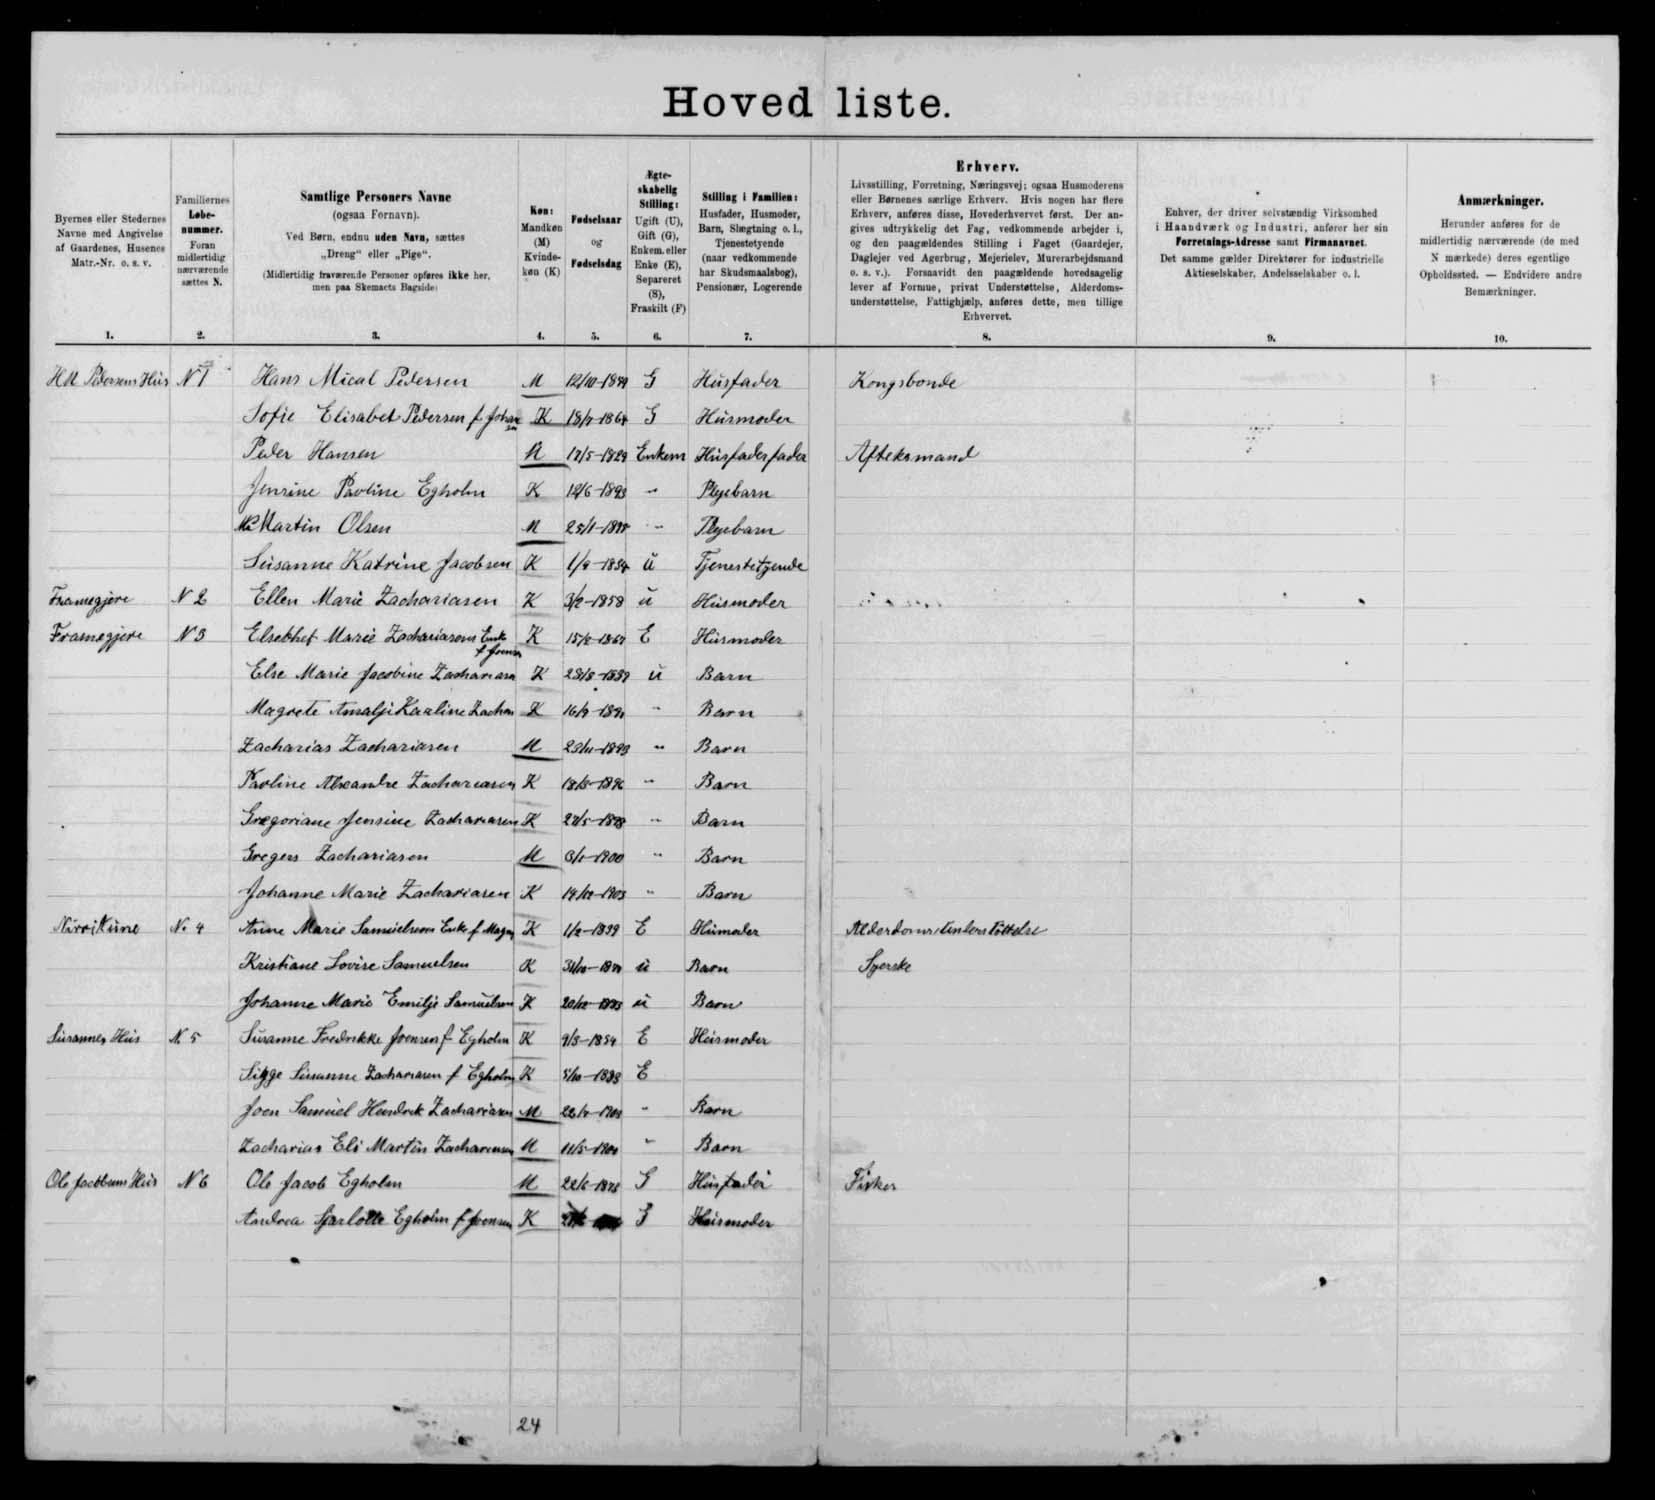 Hovedliste.
Byernes eller Stedernes Navne med Angivelse af Gaardenes, Husenes Matr.-Nr. o. s. v.
Familiernes Løbenummer. Foran midlertidig nærværende sættes N.
Samtlige Personers Navne (ogsaa Fornavn). Ved Børn, endnu uden Navn, sættes „Dreng“ eller „Pige“. (Midlertidig fraværende Personer opføres ikke her, men paa Skemaets Bagside)
Køn: Mandkøn (M) Kvindekøn (K)
Fødselsaar og Fødselsdag
Ægteskabelig Stilling: Ugift (U), Gift (G), Enkem. eller Enke (E), Separeret (S), Fraskilt (F)
Stilling i Familien: Husfader, Husmoder, Barn, Slægtning o. l., Tjenestetyende (naar vedkommende har Skudsmaalsbog), Pensionær, Logerende
Erhverv. Livsstilling, Forretning, Næringsvej; ogsaa Husmoderens eller Børnenes særlige Erhverv. Hvis nogen har flere Erhverv, anføres disse, Hovederhvervet først. Der angives udtrykkelig det Fag, vedkommende arbejder i, og den paagældendes Stilling i Faget (Gaardejer, Daglejer ved Agerbrug, Mejerielev, Murerarbejdsmand o. s. v.). Forsaavidt den paagældende hovedsagelig lever af Formue, privat Understøttelse, Alderdomsunderstøttelse, Fattighjælp, anføres dette, men tillige Erhvervet.
Enhver, der driver selvstændig Virksomhed i Haandværk og Industri, anfører her sin Forretnings-Adresse samt Firmanavnet. Det samme gælder Direktører for industrielle Aktieselskaber, Andelsselskaber o. l.
Anmærkninger. Herunder anføres for de midlertidig nærværende (de med N mærkede) deres egentlige Opholdssted. — Endvidere andre Bemærkninger.
1. 2. 3. 4. 5. 6. 7. 8. 9. 10.
HM Pedersens Hus N 1 Hans Mical Pedersen M G Husfader Kongsbonde
Sofie Elisabet Pedersen f Johansen K G Husmoder
Peder Hansen M 17/5-1829 Enkem Husfaderfader Afteksmand
Jensine Pavline Egholm K 12/6-1893 " Plejebarn
Martin Olsen M " Plejebarn
Susanne Katrine Jacobsen K u Tjenestetyende
Framegjøre N 2 Ellen Marie Zachariasen K 3/2-1858 u Husmoder
Framegjøre N 3 Elsebhet Marie Zachariasens Enk f Joensen K E Husmoder
Else Marie Jacobine Zachariasen K u Barn
Magrete Amalji Karline Zacharia K " Barn
Zacharias Zachariasen M " Barn
Pavline Alexandre Zachariasen K 18/5-1896 " Barn
Gregoriane Jensine Zachariasen K 27/5-1898 " Barn
Gregers Zachariasen M 3/1-1900 " Barn
Johanne Marie Zachariasen K 14/12-1903 " Barn
N. 4 Anne Marie Samuelsens Enke f Magn K E Husmoder Alderdomsunderstøttelse
Kristiane Lovise Samuelsen K u Barn Syerske
Johanne Marie Emilje Samuelsen K u Barn
Susannes Hus N. 5 Susanne Fredrikke Joensen f Egholm K 9/3-1854 E Husmoder
Sigge Susanne Zachariasen f Egholm K E
Joen Samuel Hendrik Zachariasen M " Barn
Zacharias Eli Martin Zachariasen M " Barn
Ole Jacobsens Hus N 6 Ole Jacob Egholm M G Husfader Fisker
Andrea Sjarlotte Egholm f Joensen K G Husmoder
24